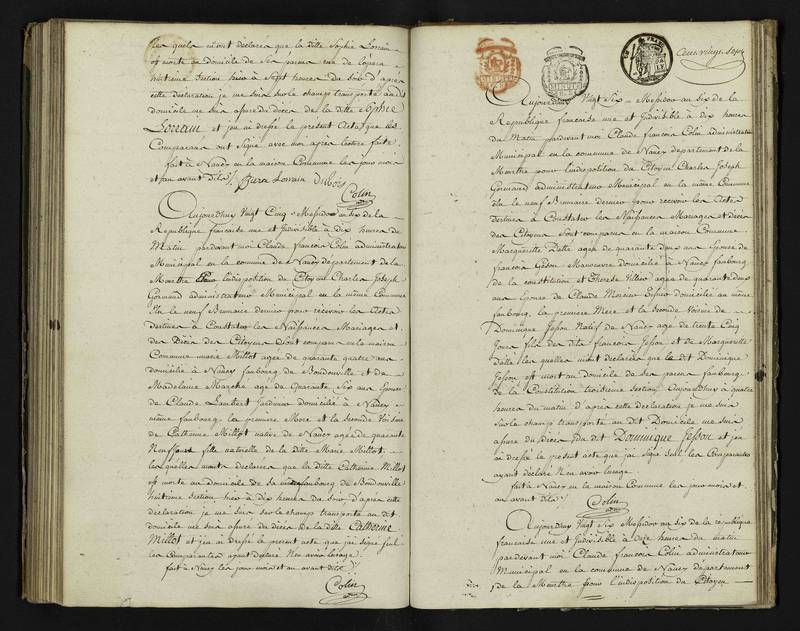 les quels m'ont déclarés que la ditte Sophie Lorrain
est morte au domicile de ses pere
huitieme Section hier à Sept heures du Soir d'après
cette déclaration je me suis sur le champ transporté au dit
domicile me suis assuré du décès de la ditte Sophie
Lorrain et j'en ai dressé le present Acte que les
Comparans ont Signé avec moi après lecture faite
fait à Nancy en la maison Commune les jour mois
et an avant dits Lorrain Dubois
Colin
Aujourdhuy Vingt Cinq Messidor an six de la
République francaise une et Indivisible à dix heures du
Matin pardevant moi Claude francois Colin administrateur
Municipal en la commune de Nancy département de la
Meurthe pour l'indisposition du Citoyen Charles Joseph
Gormand administrateur Municipal en la même Commune
élu le neuf Brumaire dernier pour recevoir les Actes
destinés à Constater les Naissances Mariages et
des Décès des Citoyens Sont comparus en la maison
Commune marie Millot agée de quarante quatre ans
domiciliée à Nancy faubourg de Boudonville et de
Madelaine Marché agé de Quarante Six ans Epouse
de Claude Lambert Jardinier domicilié à Nancy
même faubourg la premiere Mere et la Seconde Voisine
de Catherine Millot native de Nancy agée de quarante
Neuf Jours fille naturelle de la ditte Marie Millot
les quelles mont déclarées que la ditte Catherine Millot
est morte au domicile de sa mere faubourg de Boudonville
huitieme Section hier à dix heures du Soir d'après cette
déclaration je me suis sur le champ transporté au dit
domicile me suis assuré du décès de la ditte Catherine
Millot et j'en ai dressé le present acte que j'ai Signé seul
les Comparantes ayant déclaré Ne savoir l'usage
fait à Nancy les jour mois et an avant dits
Colin
Cent vingt Sept
Aujourdhuy Vingt Six Messidor an six de la
République francaise une et Indivisible à dix heures
du Matin pardevant moi Claude francois Colin administrateur
Municipal en la commune de Nancy département de la
Meurthe pour l'indisposition du Citoyen Charles Joseph
Gormand administrateur Municipal en la même Commune
élu le neuf Brumaire dernier pour recevoir les Actes
destinés à Constater les Naissances Mariages et décès
des Citoyens Sont comparus en la maison Commune
Marguerite agée de quarante deux ans Epouse de
francois Manoeuvre domicilié à Nancy faubourg
de la constitution et Therese agée de quarante deux
ans Epouse de Claude domicilié au même
faubourg, la premiere Mere et la Seconde Voisine de
Dominique Natif de Nancy agé de trente Cinq
Jours fils du dit francois et de Marguerite
les quelles m'ont déclarées que le dit Dominique
est mort au domicile de ses pere faubourg
de la Constitution troisieme Section Aujourdhuy à quatre
heures du matin d'après cette déclaration je me suis
sur le champ transporté au dit Domicile me suis
assuré du décès du dit Dominique et j'en
ai dressé le present acte que j'ai Signé seul les Comparantes
ayant déclaré Ne savoir l'usage
fait à Nancy en la maison Commune les jour mois et
an avant dits
Colin
Aujourdhuy Vingt Six Messidor an six de la république
francaise une et Indivisible à heures du matin
pardevant moi Claude francois Colin administrateur
Municipal en la commune de Nancy département
de la Meurthe pour l'indisposition du Citoyen